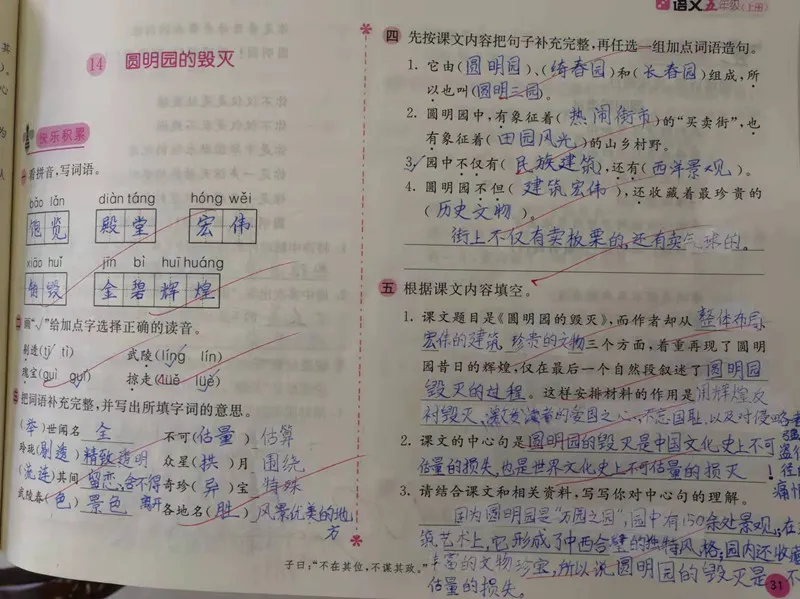 语文五年级(上册)
14 圆明园的毁灭
快乐积累
看拼音,写词语。
bǎo lǎn diàn táng hóng wěi
饱览 殿堂 宏伟
xiāo huǐ jīn bì huī huáng
销毁 金碧辉煌
画“√”给加点字选择正确的读音。
剔透(tī tì) 武陵(líng lín)
瑰宝(guì guī) 掠走(luě lüè)
把词语补充完整,并写出所填字词的意思。
(举)世闻名 全 不可(估量) 估算
玲珑(剔透) 精致透明 众星(拱)月 围绕
(流连)其间 留恋,舍不得离开 奇珍(异)宝 特殊
武陵春(色) 景色 各地名(胜) 风景优美的地方
子曰:“不在其位,不谋其政。”
四 先按课文内容把句子补充完整,再任选一组加点词语造句。
1. 它由(圆明园)、(绮春园)和(长春园)组成,所
以也叫(圆明三园)。
2. 圆明园中,有象征着(热闹街市)的“买卖街”,也
有象征着(田园风光)的山乡村野。
3. 园中不仅有(民族建筑),还有(西洋景观)。
4. 圆明园不但(建筑宏伟),还收藏着最珍贵的
(历史文物)。
街上不仅有卖板栗的,还有卖气球的。
五 根据课文内容填空。
1. 课文题目是《圆明园的毁灭》,而作者却从 整体布局
宏伟的建筑 珍贵的文物 三个方面,着重再现了圆明
园昔日的辉煌,仅在最后一个自然段叙述了 圆明园
毁灭的过程。这样安排材料的作用是 用辉煌反
衬毁灭,激发读者的爱国之心,不忘国耻,以及对侵略者
2. 课文的中心句是 圆明园的毁灭是中国文化史上不可
估量的损失,也是世界文化史上不可估量的损灭!
3. 请结合课文和相关资料,写写你对中心句的理解。
因为圆明园是“万园之园”,园中有150余处景观;在
筑艺术上,它形成了中西合壁的独特风格;园内还收藏
丰富的文物珍宝,所以说圆明园的毁灭是不
估量的损失。
31